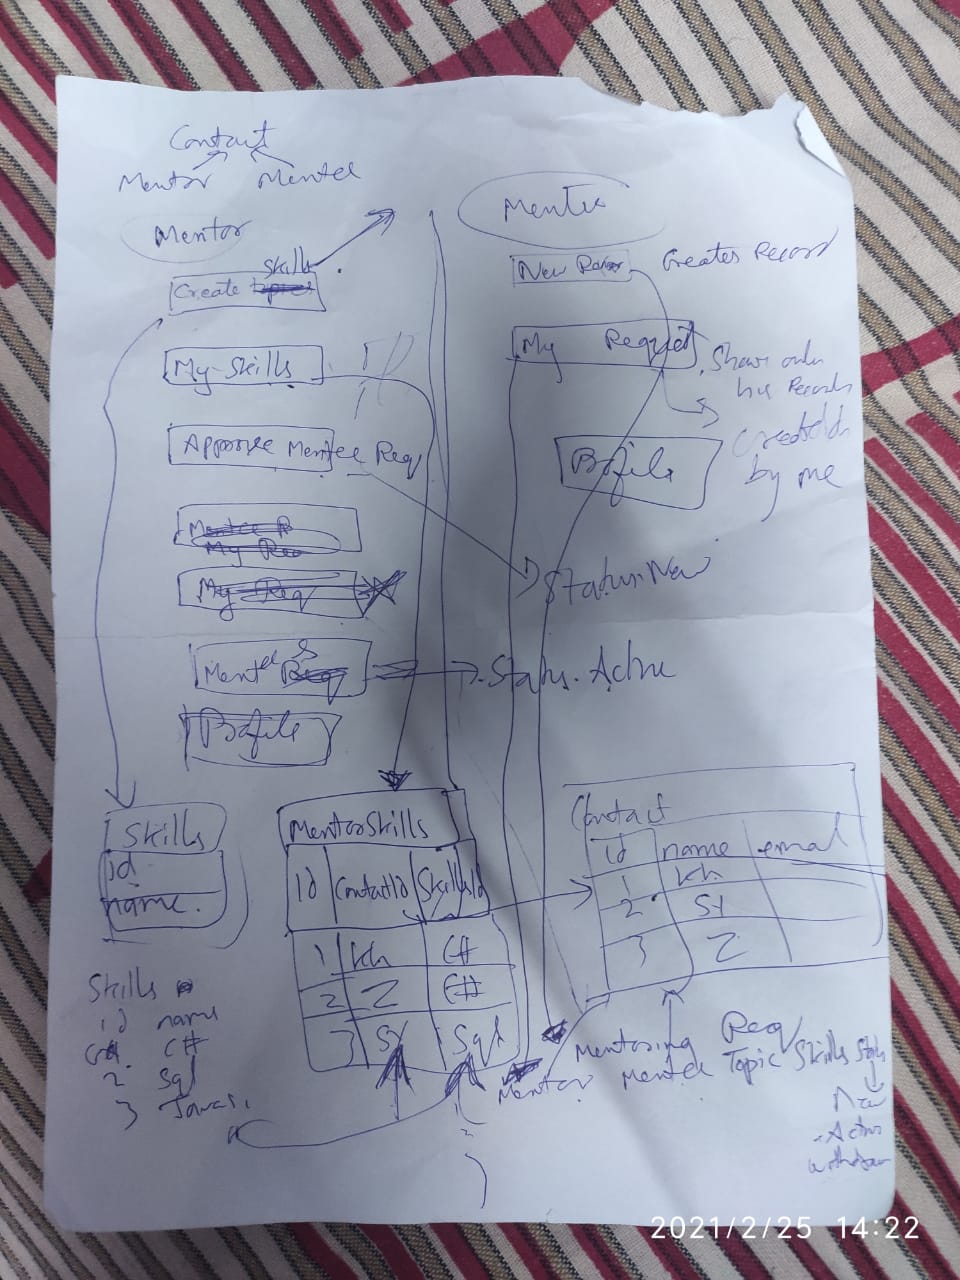 Contact
Mentor Mentee
Mentor
Skills
Create topics
My Skills
Approve Mentee Req
Mentee R
My Req
My Req
Mentees Req
Profile
Mentee
New
Creates Record
My Request
Show only
his Records
Created
by me
Profile
Status: New
Status. Active
Skills
id
name.
MentorSkills
id ContactId SkillsId
1 kh C#
2 Z C#
3 SY Sql
Contact
id name email
1 kh
2 SY
3 Z
Skills
id name
C#
2 Sql
3 Javas.
Mentoring Req
Mentor Mentee Topic Skills Status
New
Active
withdraw
2021/2/25 14:22